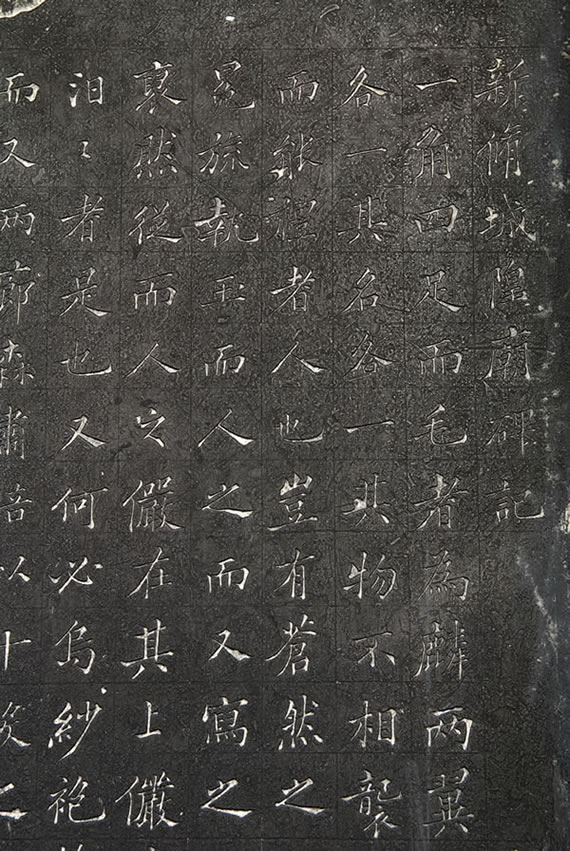 新脩城隍廟碑記
一角四足而毛者為麟两翼
各一其名各一其物不相襲
而能禮者人也豈有蒼然之
冕旒執玉而人之而又寫之
裒然從而人之儼在其上儼
汩〻者是也又何必烏紗袍
而又两廊森肅陪以十殿之